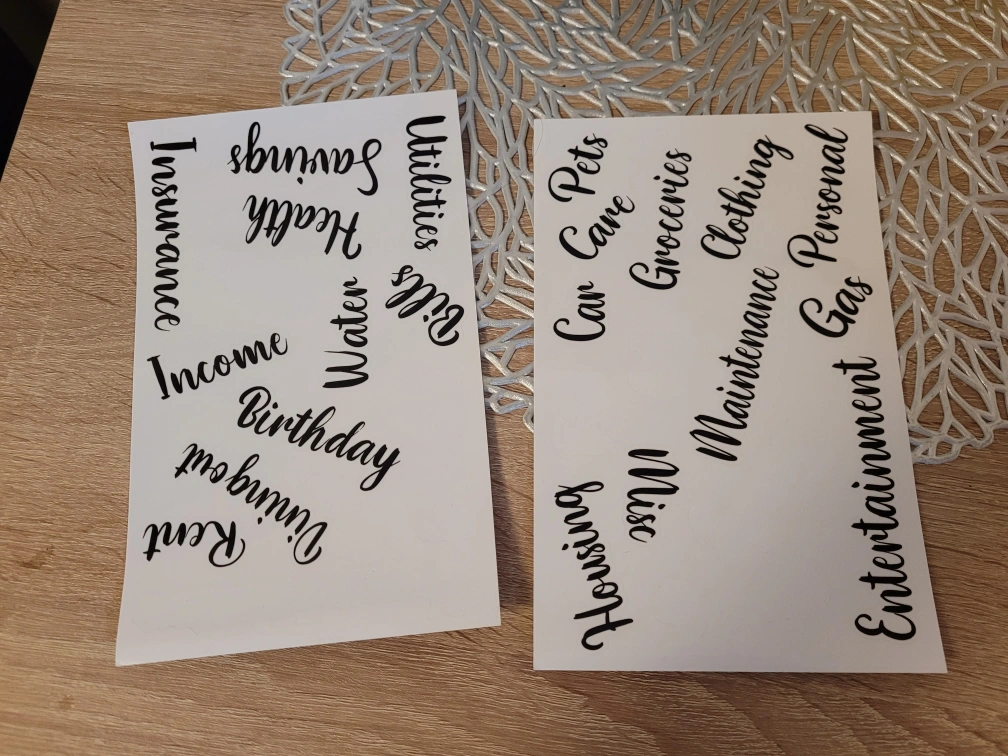 Insurance
Savings
Health
Utilities
Bills
Water
Income
Birthday
Diningout
Rent
Pets
Car Care
Groceries
Clothing
Personal
Gas
Maintenance
Misc
Housing
Entertainment